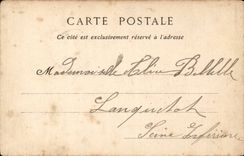 CARTE POSTALE
Ce côté est exclusivement réservé à l'adresse
Mademoiselle
Lanquetot
Seine Inférieure